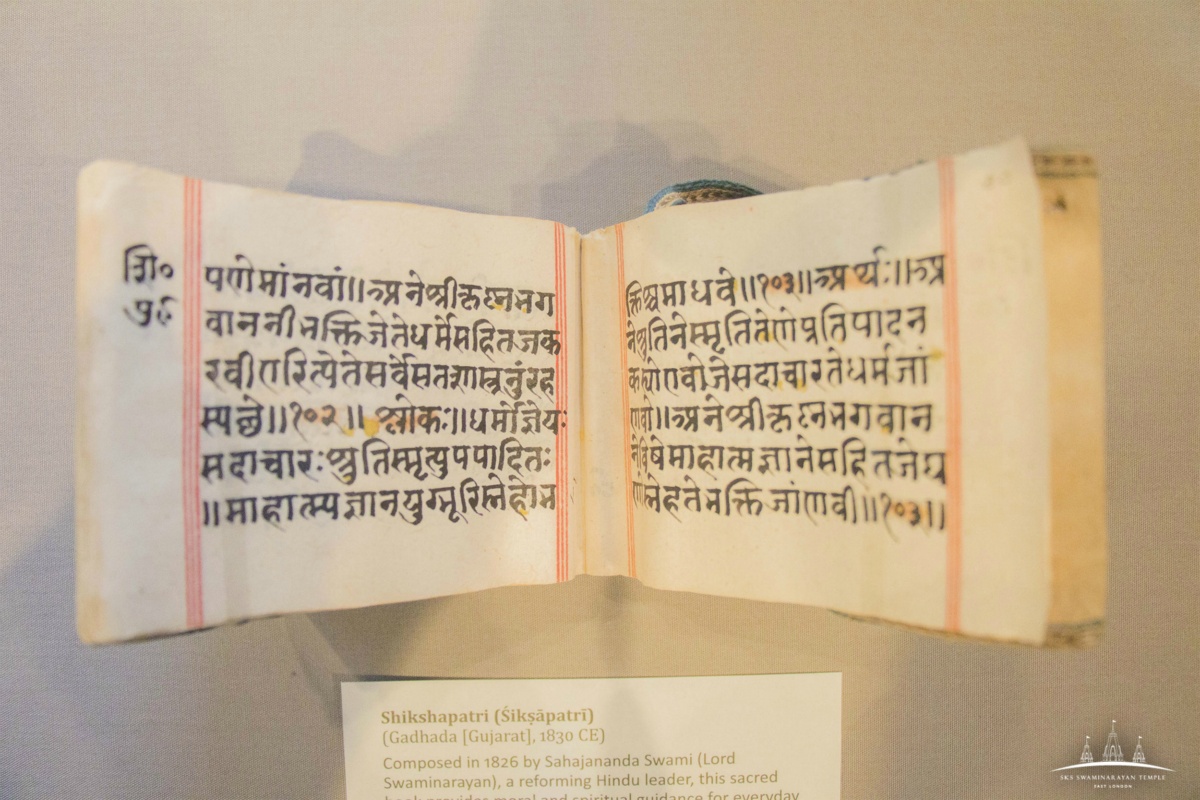 शि०
पत्र
पणेमांनवां॥अनेश्रीकृष्नभग
वाननीभक्तिजेतेधर्मेसहितजक
रवीएरित्येतेसर्वेसतशास्त्रनुंरह
स्यछे॥१०२॥श्लोकः॥धर्मोज्ञेयः
सदाचारःश्रुतिस्मृत्युपपादितः
॥माहात्म्यज्ञानयुग्भूरिस्नेहोभ
क्तिश्चमाधवे॥१०३॥अर्थः॥अ
नेश्रुतिनेस्मृतितेणेप्रतिपादन
कर्योएवोजेसदाचारतेधर्मजां
णवो॥अनेश्रीकृष्नभगवान
नेविषेमाहात्मज्ञानेसहितजेघ
णोस्नेहतेभक्तिजांणवी॥१०३॥
Shikshapatri (Śikṣāpatrī)
(Gadhada [Gujarat], 1830 CE)
Composed in 1826 by Sahajananda Swami (Lord
Swaminarayan), a reforming Hindu leader, this sacred
book provides moral and spiritual guidance for everyday
SKS SWAMINARAYAN TEMPLE
EAST LONDON